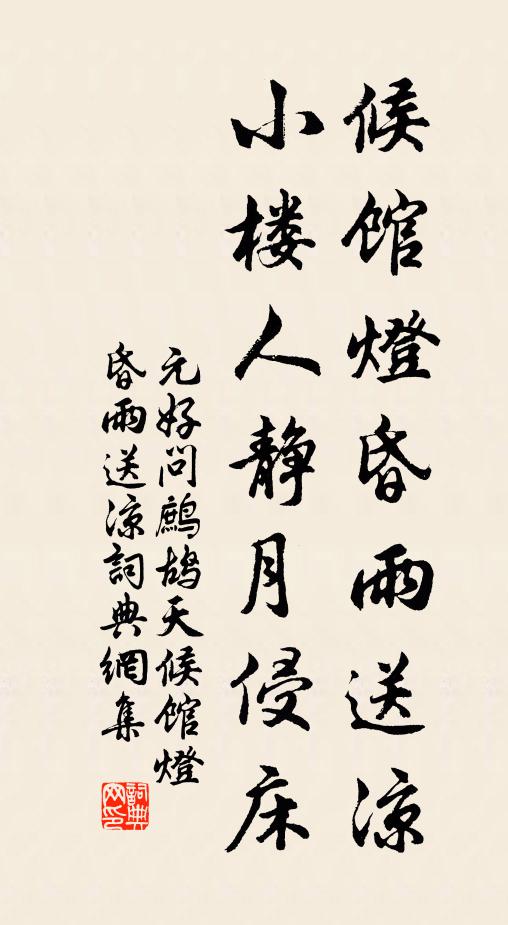 候馆燈昏雨送凉
小楼人静月侵床
元好问鹧鸪天候馆燈
昏雨送凉詞典網集
詞典网印